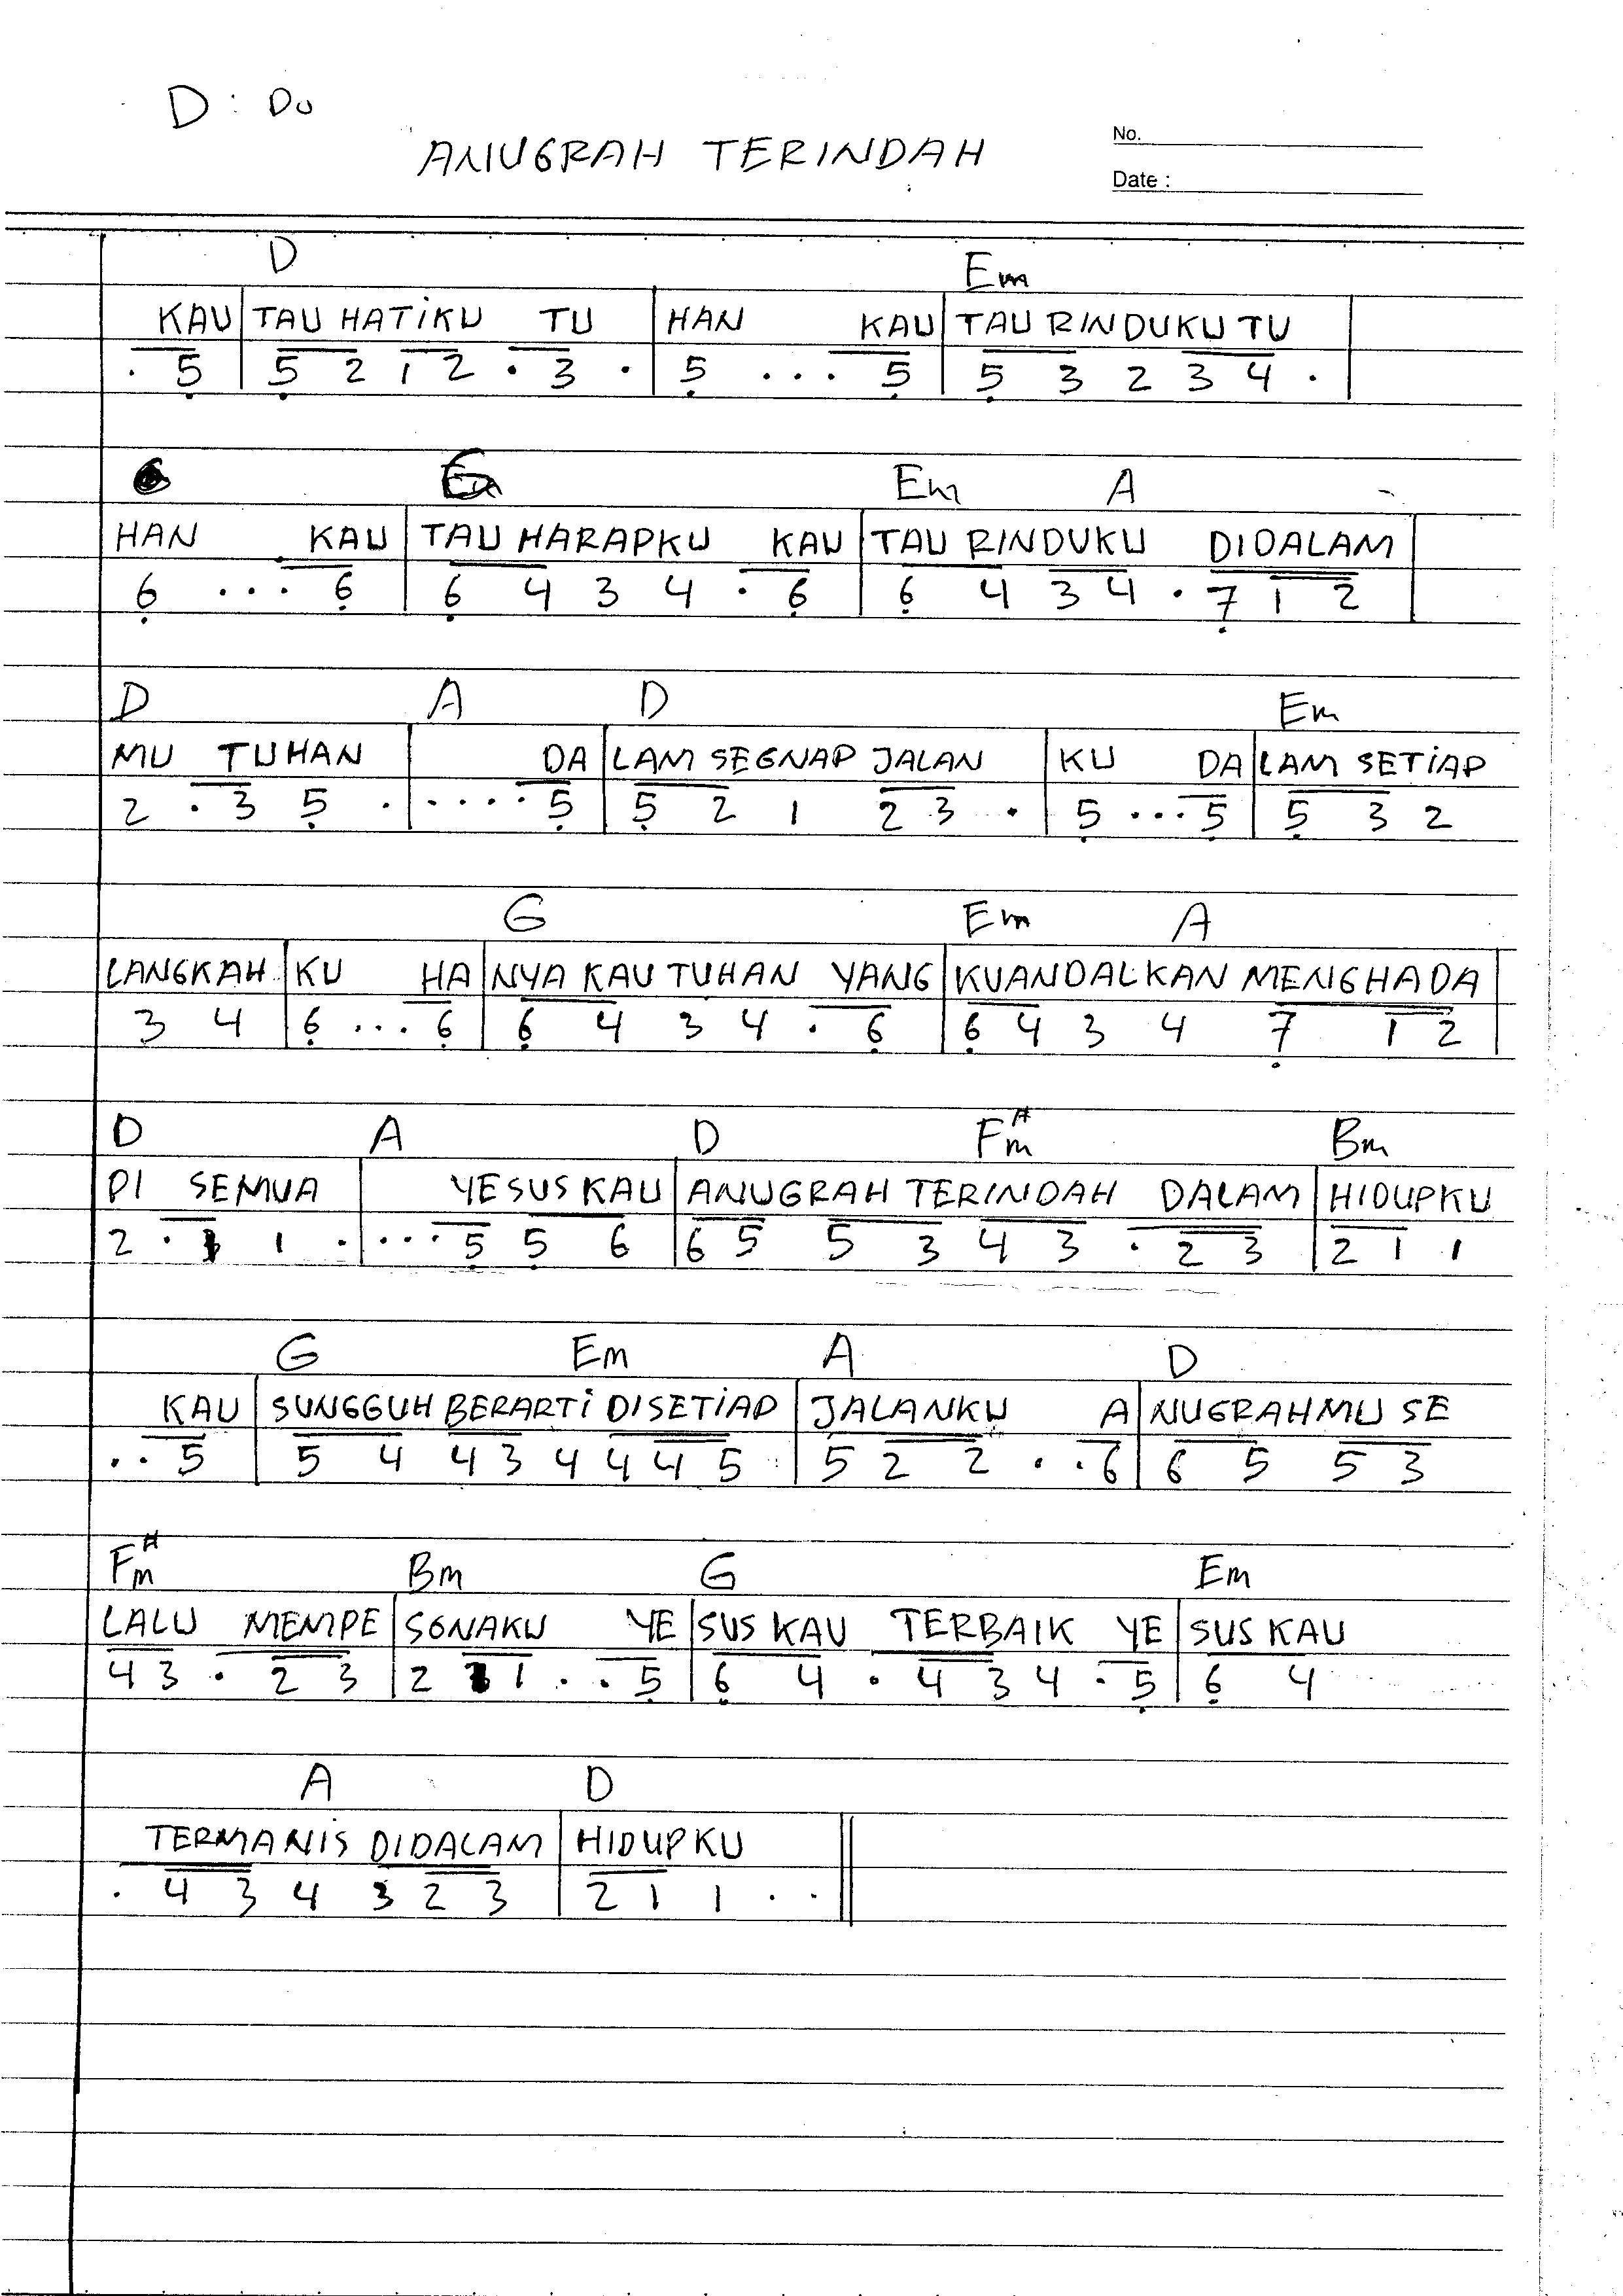 D : Do
ANUGRAH TERINDAH
No.
Date :
D Em
KAU | TAU HATIKU TU | HAN KAU | TAU RINDUKU TU |
. 5 | 5 2 1 2 . 3 . | 5 . . . 5 | 5 3 2 3 4 . |
Em A
HAN KAU | TAU HARAPKU KAU | TAU RINDUKU DIDALAM |
6 . . . 6 | 6 4 3 4 . 6 | 6 4 3 4 . 7 1 2 |
D A D Em
MU TUHAN | DA | LAM SEGNAP JALAN | KU DA | LAM SETIAP
2 . 3 5 . | . . . . 5 | 5 2 1 2 3 . | 5 . . . 5 | 5 3 2
G Em A
LANGKAH | KU HA | NYA KAU TUHAN YANG | KUANDALKAN MENGHADA |
3 4 | 6 . . . 6 | 6 4 3 4 . 6 | 6 4 3 4 7 1 2 |
D A D F#m Bm
DI SEMUA | YESUS KAU | ANUGRAH TERINDAH DALAM | HIDUPKU
2 . 1 1 . | . . . 5 5 6 | 6 5 5 3 4 3 . 2 3 | 2 1 1
G Em A D
KAU | SUNGGUH BERARTI DISETIAP | JALANKU A | NUGRAHMU SE
. . 5 | 5 4 4 3 4 4 4 5 | 5 2 2 . . 6 | 6 5 5 3
F#m Bm G Em
LALU MEMPE | SONAKU YE | SUS KAU TERBAIK YE | SUS KAU
4 3 . 2 3 | 2 1 1 . . 5 | 6 4 . 4 3 4 . 5 | 6 4
A D
TERMANIS DIDALAM | HIDUPKU
. 4 3 4 3 2 3 | 2 1 1 . .